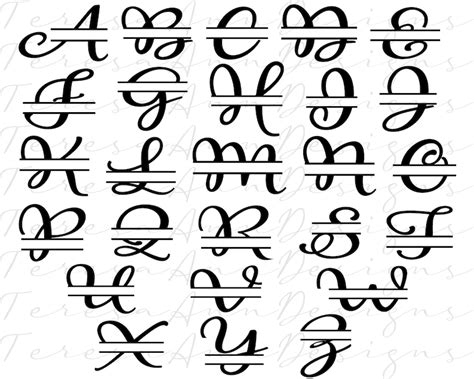 A B C D E
F G H I J
K L M N O
P Q R S T
U V W
X Y Z
Teresa Ann Designs